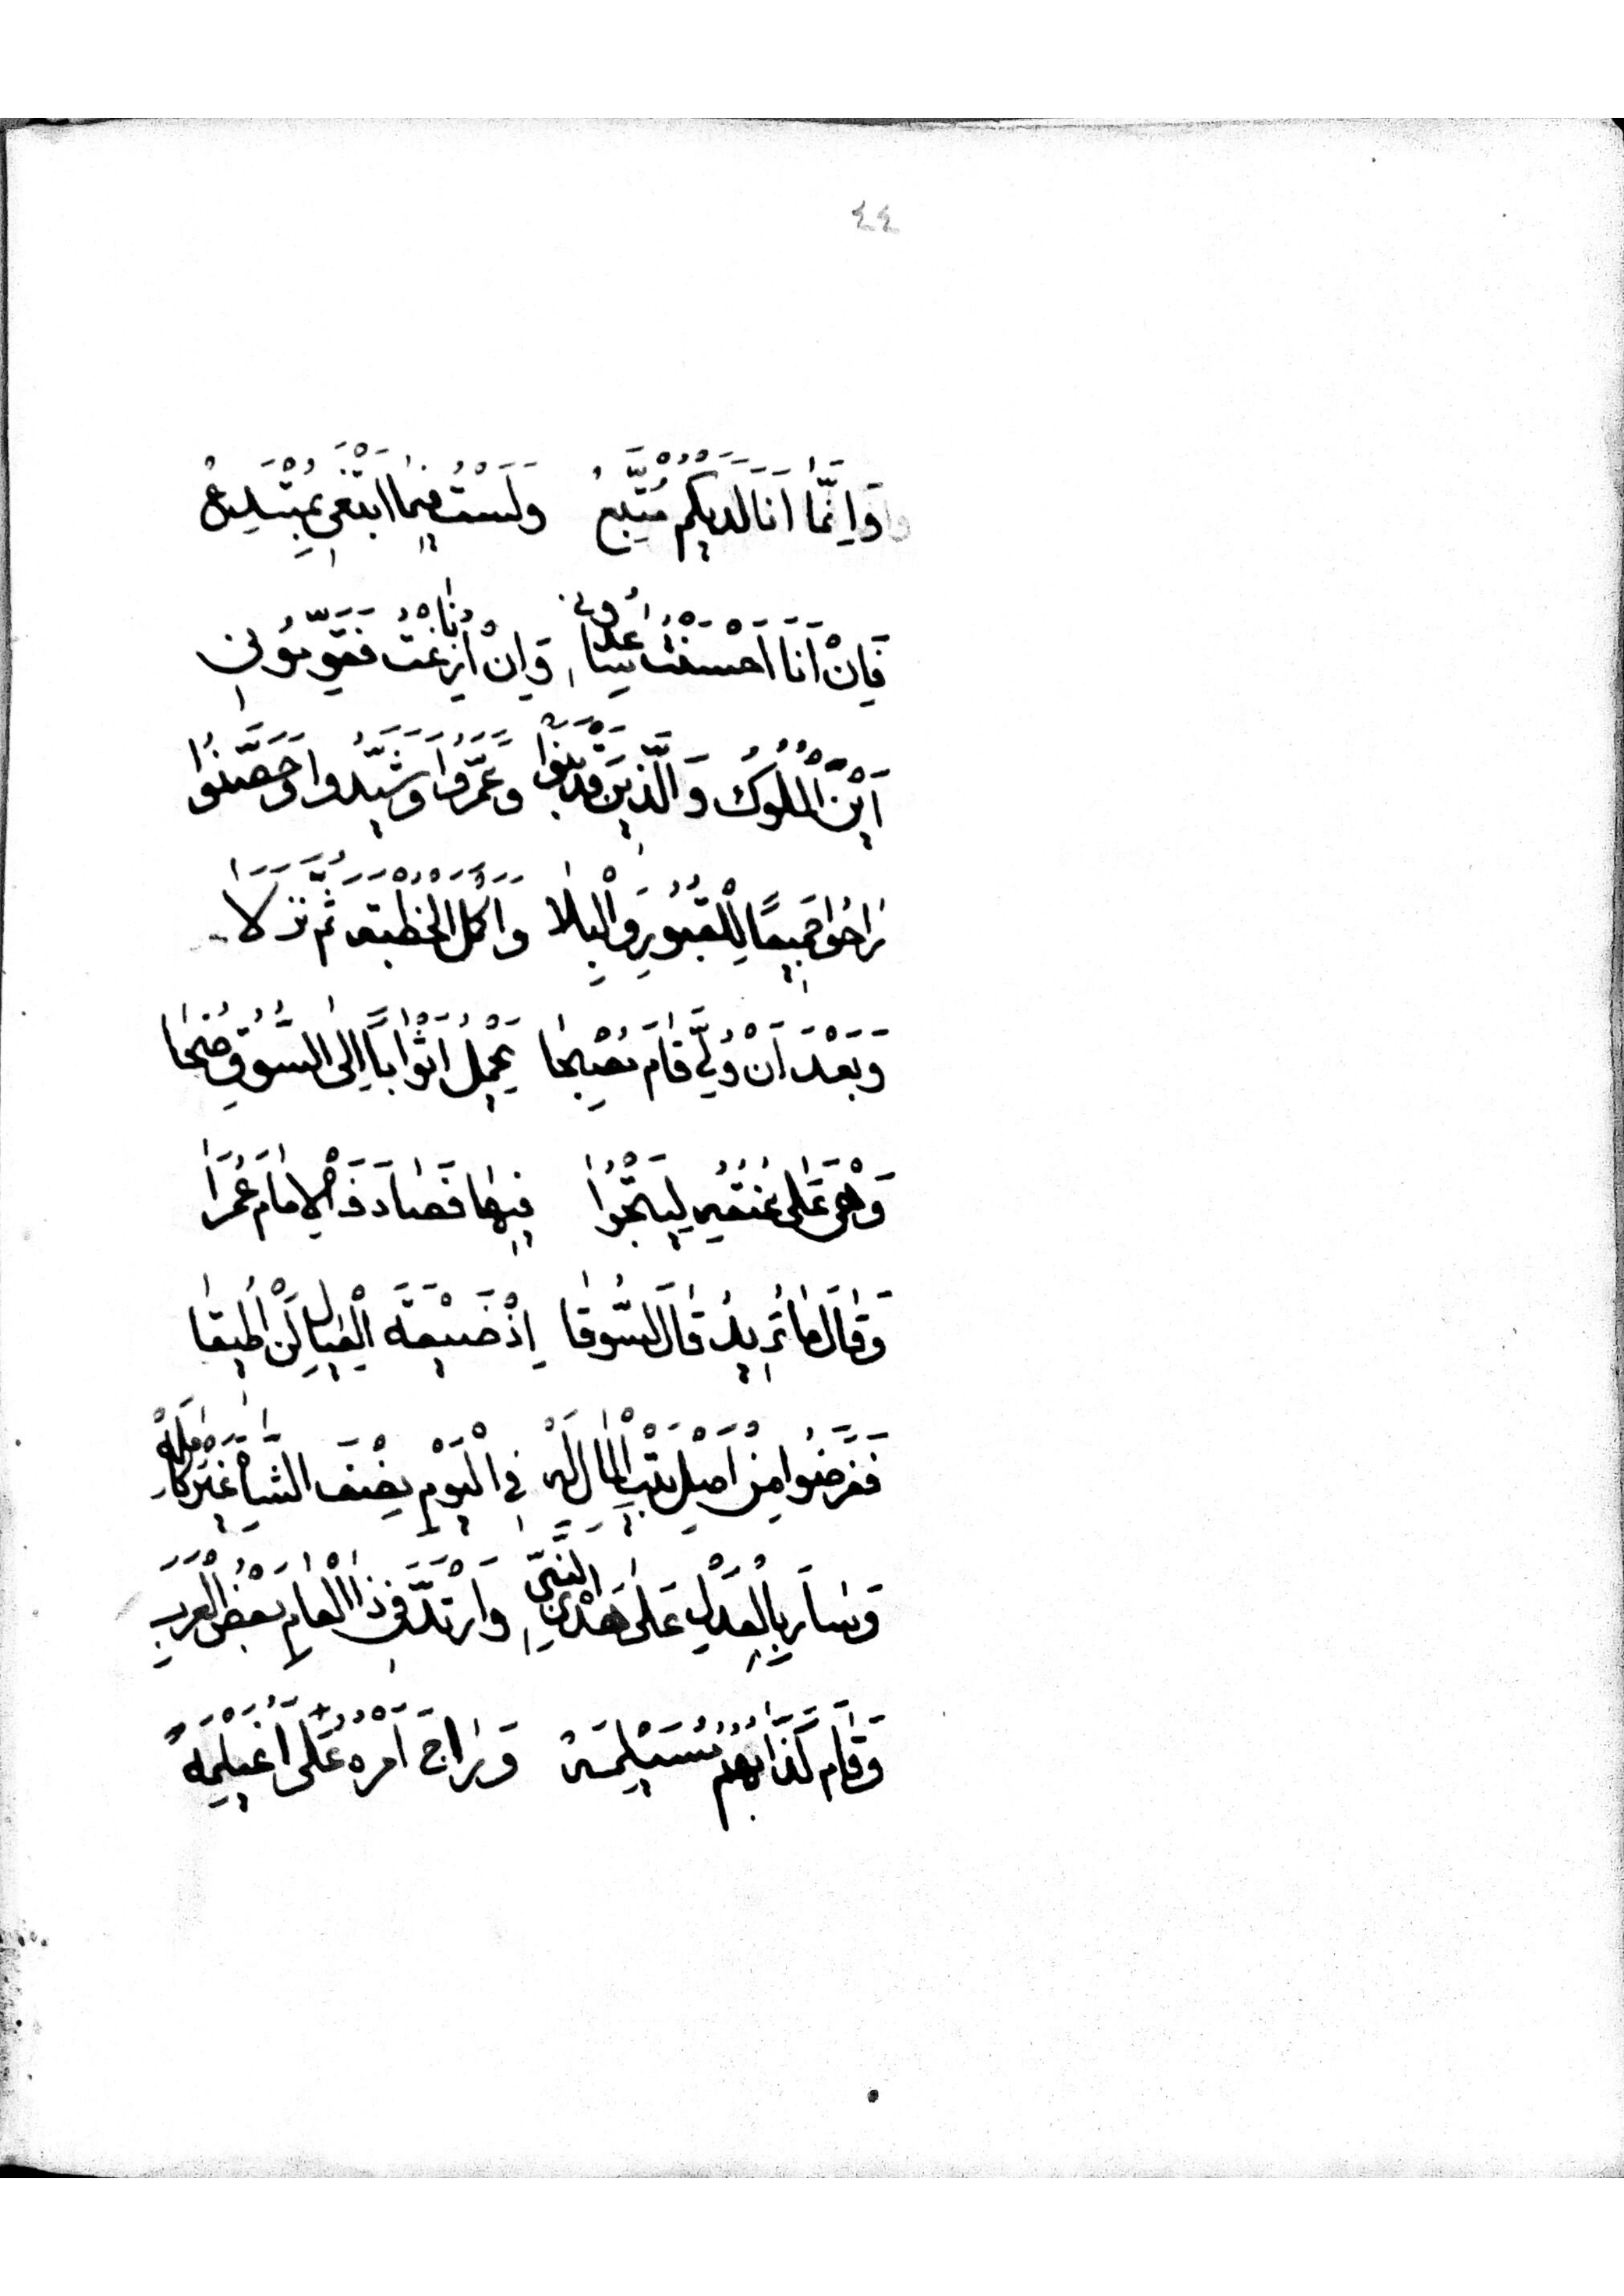 ٤٤
وَاِنَّمَا اَنَا لَدَيْكُمْ مُتَّبِعْ وَلَسْتُ فِيمَا اَبْتَغِي بِمُبْتَدِعْ
فَاِنْ اَنَا اَحْسَنْتُ سَاعِدُونِي وَاِنْ اَنَا زِغْتُ فَقَوِّمُونِي
اَيْنَ الْمُلُوكُ وَالَّذِينَ قَدْ بَنَوْا وَعَمَّرُوا وَشَيَّدُوا وَحَصَّنُوا
رَاحُوا جَمِيعًا لِلْقُبُورِ وَالْبِلَا وَاَكْمَلَ الْخُطْبَةَ ثُمَّ نَزَلَا
وَبَعْدَ اَنْ وُلِّيَ قَامَ مُصْبِحَا يَحْمِلُ اَثْوَابًا اِلَى السُّوقِ ضُحَا
وَهْيَ عَلَى عُنُقِهِ لِيَتْجُرَا فِيهَا فَصَادَفَ الْاِمَامَ عُمَرَا
وَقَالَ مَا تُرِيدُ قَالَ السُّوقَا اِذْ ضَيْعَةَ الْعِيَالِ لَنْ اُطِيقَا
فَفَرَضُوا مِنْ اَصْلِ بَيْتِ الْمَالِ لَهْ فِي الْيَوْمِ نِصْفَ الشَّاةِ غَيْرَ كَامِلَهْ
وَسَارَ بِالْعَدْلِ عَلَى هَدْيِ النَّبِيِّ وَارْتَدَّ فِي ذَا الْعَامِ بَعْضُ الْعَرَبِ
وَقَامَ كَذَّابُهُمُ مُسَيْلِمَهْ وَرَاجَ اَمْرُهُ عَلَى اُغَيْلِمَهْ